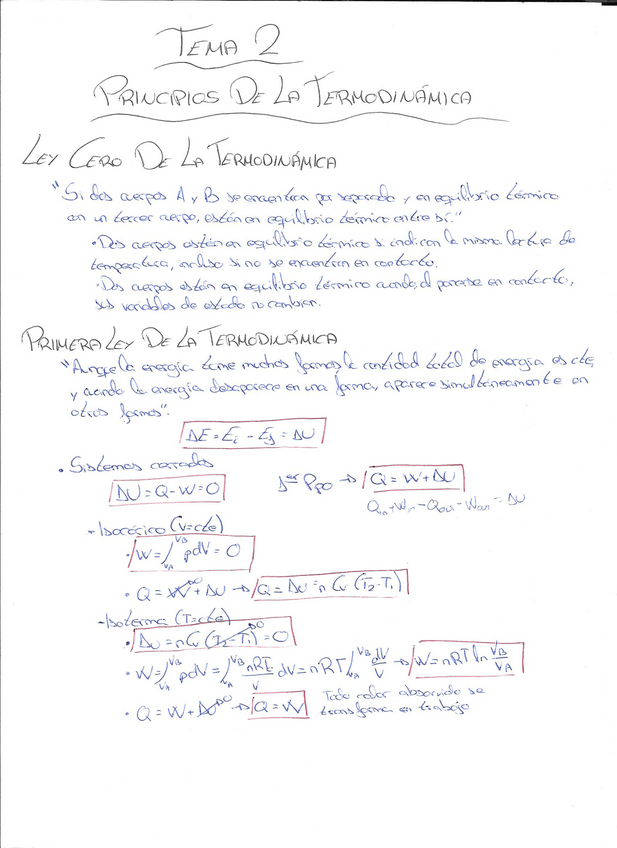 TEMA 2
PRINCIPIOS DE LA TERMODINÁMICA
LEY CERO DE LA TERMODINÁMICA
"Si dos cuerpos A y B se encuentran por separado y en equilibrio térmico
con un tercer cuerpo, están en equilibrio térmico entre sí."
·Dos cuerpos están en equilibrio térmico si indican la misma lectura de
temperatura, incluso si no se encuentran en contacto.
·Dos cuerpos están en equilibrio térmico cuando, al ponerse en contacto,
sus variables de estado no cambian.
PRIMERA LEY DE LA TERMODINÁMICA
"Aunque la energía tome muchas formas, la cantidad total de energía es cte,
y cuando la energía desaparece en una forma, aparece simultáneamente en
otras formas".
ΔE = Ei - Ef = ΔU
· Sistemas cerrados
ΔU = Q - W = 0
1er Ppo → Q = W + ΔU
Qin + Win - Qout - Wout = ΔU
- Isocórico (V=cte)
· W = ∫VA VB pdV = 0
· Q = W→0 + ΔU → Q = ΔU = n Cv (T2 - T1)
- Isoterma (T=cte)
· ΔU = n Cv (T2 - T1)→0 = 0
· W = ∫VA VB pdV = ∫VA VB nRT/V dV = nRT ∫VA VB dV/V → W = nRT ln VB/VA
· Q = W + ΔU→0 → Q = W Todo calor absorbido se
transforma en trabajo